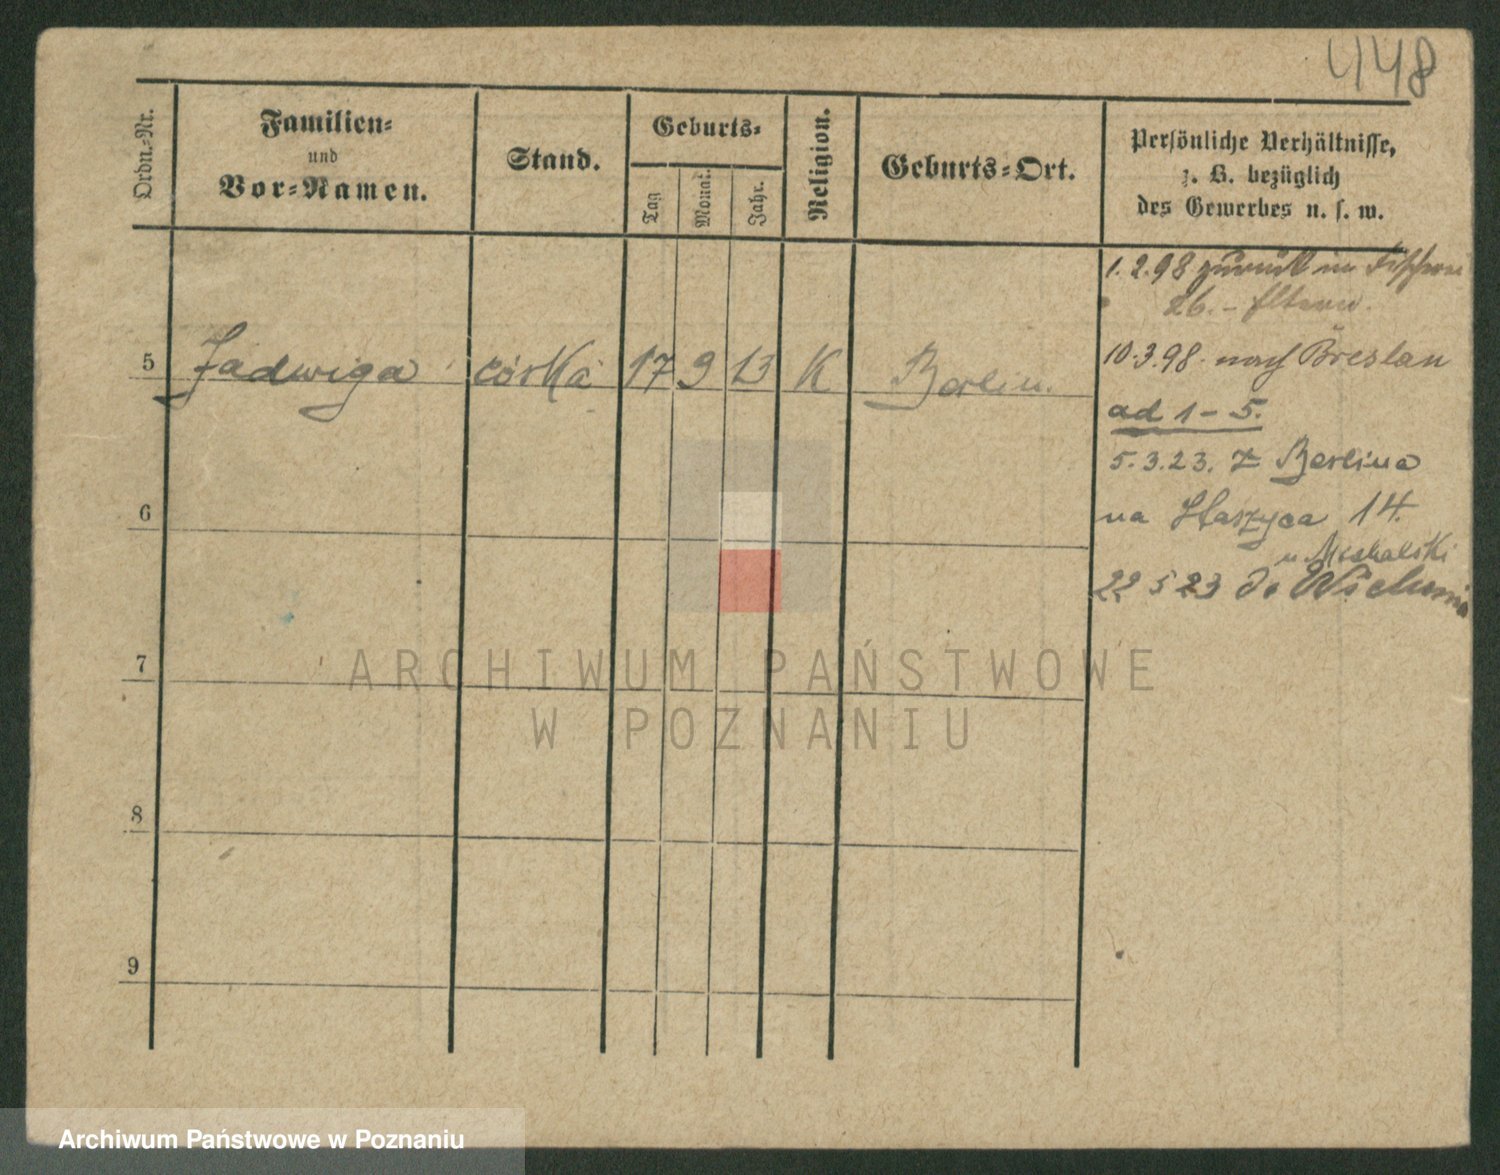 448
Ordn.-Nr.
Familien-
und
Vor-Namen.
Stand.
Geburts-
Tag
Monat.
Jahr.
Religion.
Geburts-Ort.
Persönliche Verhältnisse,
z. B. bezüglich
des Gewerbes u. s. w.
1. 2. 98 zurück
26. - Eltern.
5 Jadwiga córka 17 9 13 K Berlin.
10.3.98. nach Breslau
ad 1 - 5.
5.3.23. z Berlina
na 14.
u Michalski
6
22 5 23 do
7
8
9
ARCHIWUM PAŃSTWOWE
W POZNANIU
Archiwum Państwowe w Poznaniu